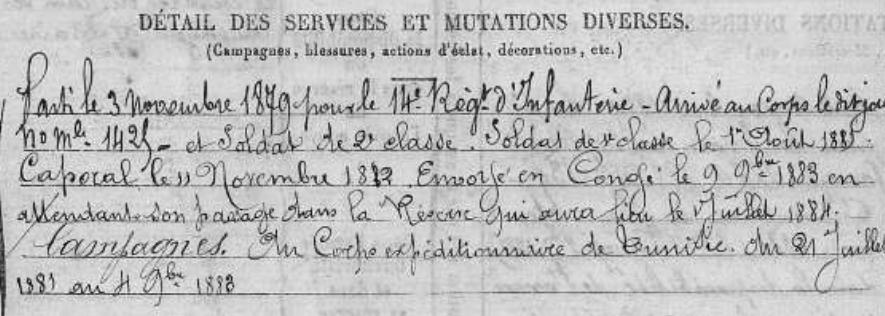 DÉTAIL DES SERVICES ET MUTATIONS DIVERSES.
(Campagnes, blessures, actions d'éclat, décorations, etc.)
Parti le 3 Novembre 1879 pour le 14e Régt d'Infanterie - Arrivé au Corps le dit jour
No Mle 1425 - et Soldat de 2e classe. Soldat de 1e classe le 1er Août 1881.
Caporal le 11 Novembre 1882. Envoyé en Congé le 9 9bre 1883 en
attendant son passage dans la Réserve qui aura lieu le 1er Juillet 1884.
Campagnes. Au Corps expéditionnaire de Tunisie. du 21 Juillet
1881 au 4 9bre 1883